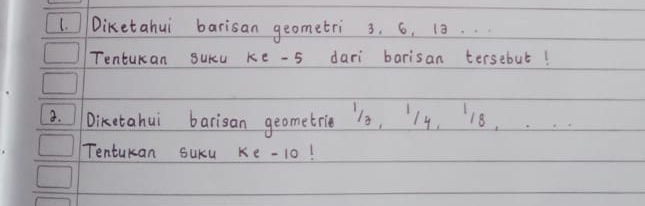 1. Diketahui barisan geometri 3, 6, 12 ...
Tentukan suku ke -5 dari barisan tersebut !
2. Diketahui barisan geometrie 1/2, 1/4, 1/8, ...
Tentukan suku ke -10 !